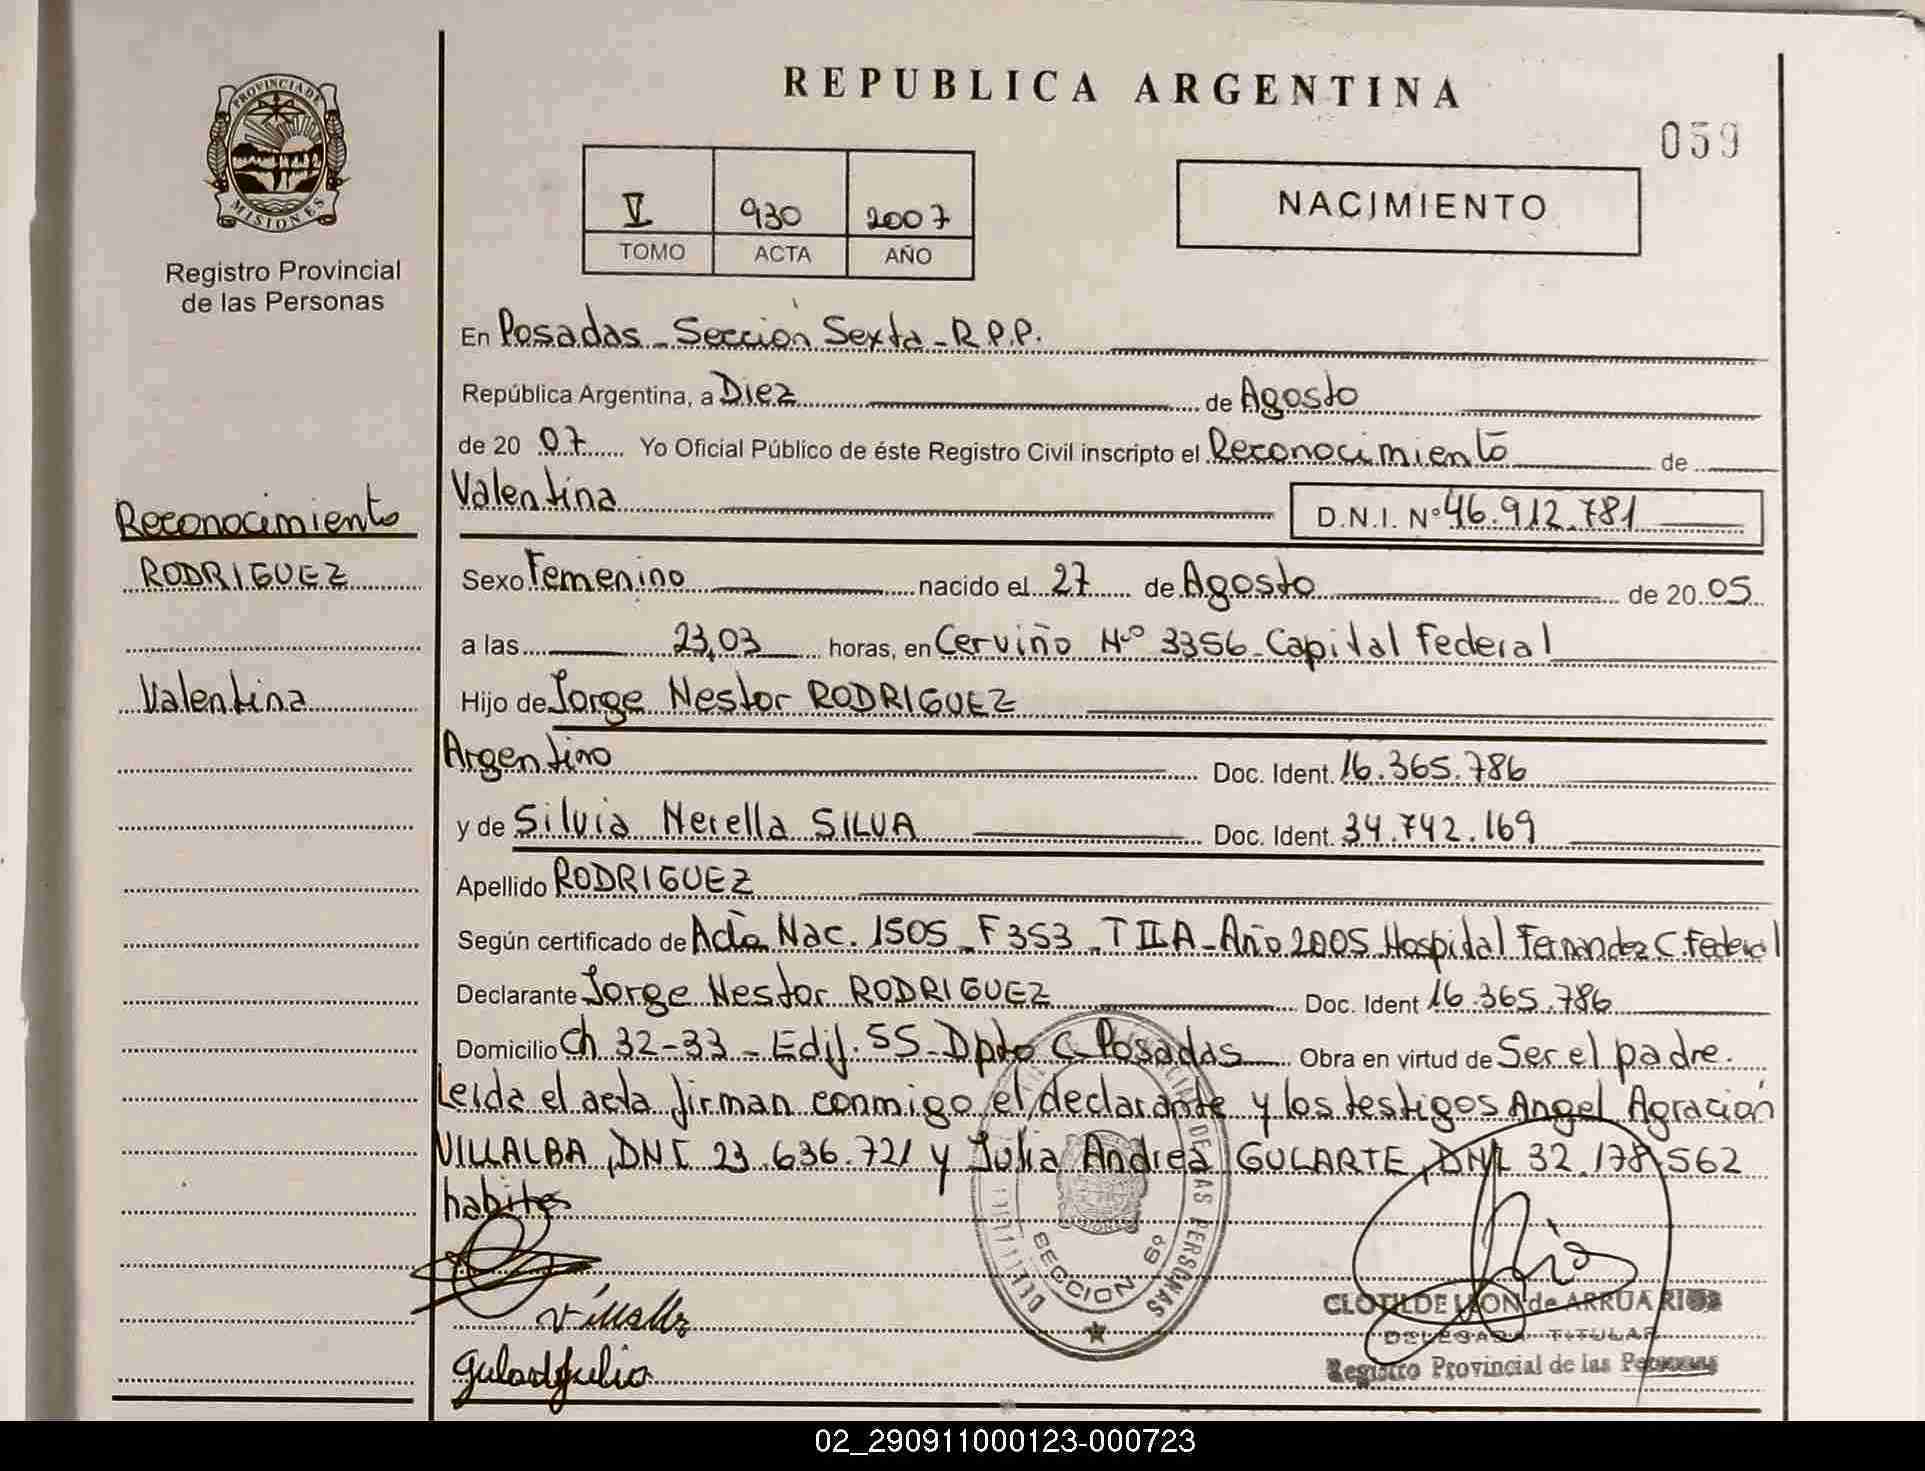 PROVINCIA DE
MISIONES
Registro Provincial
de las Personas
Reconocimiento
RODRIGUEZ
Valentina
REPUBLICA ARGENTINA
059
V 930 2007
TOMO ACTA AÑO
NACIMIENTO
En Posadas - Sección Sexta - R.P.P.
República Argentina, a Diez de Agosto
de 20 07 Yo Oficial Público de éste Registro Civil inscripto el Reconocimiento de
Valentina D.N.I. Nº 46.912.781
Sexo Femenino nacido el 27 de Agosto de 20 05
a las 23,03 horas, en Cerviño Nº 3356 - Capital Federal
Hijo de Jorge Nestor RODRIGUEZ
Argentino Doc. Ident. 16.365.786
y de Silvia Nerella SILVA Doc. Ident. 34.742.169
Apellido RODRIGUEZ
Según certificado de Acta Nac. 1505 - F 353 - T II A - Año 2005 Hospital Fernandez C. Federal
Declarante Jorge Nestor RODRIGUEZ Doc. Ident 16.365.786
Domicilio Ch 32-33 - Edif. 55 - Dpto C - Posadas Obra en virtud de Ser el padre.
Leída el acta firman conmigo el declarante y los testigos Angel Agración
VILLALBA, DNI 23.636.721 y Julia Andrea GULARTE, DNI 32.178.562
habiles
DE LAS PERSONAS
SECCION 6º
CLOTILDE LEON de ARRUA RIOS
DELEGADA TITULAR
Registro Provincial de las Personas
02_290911000123-000723